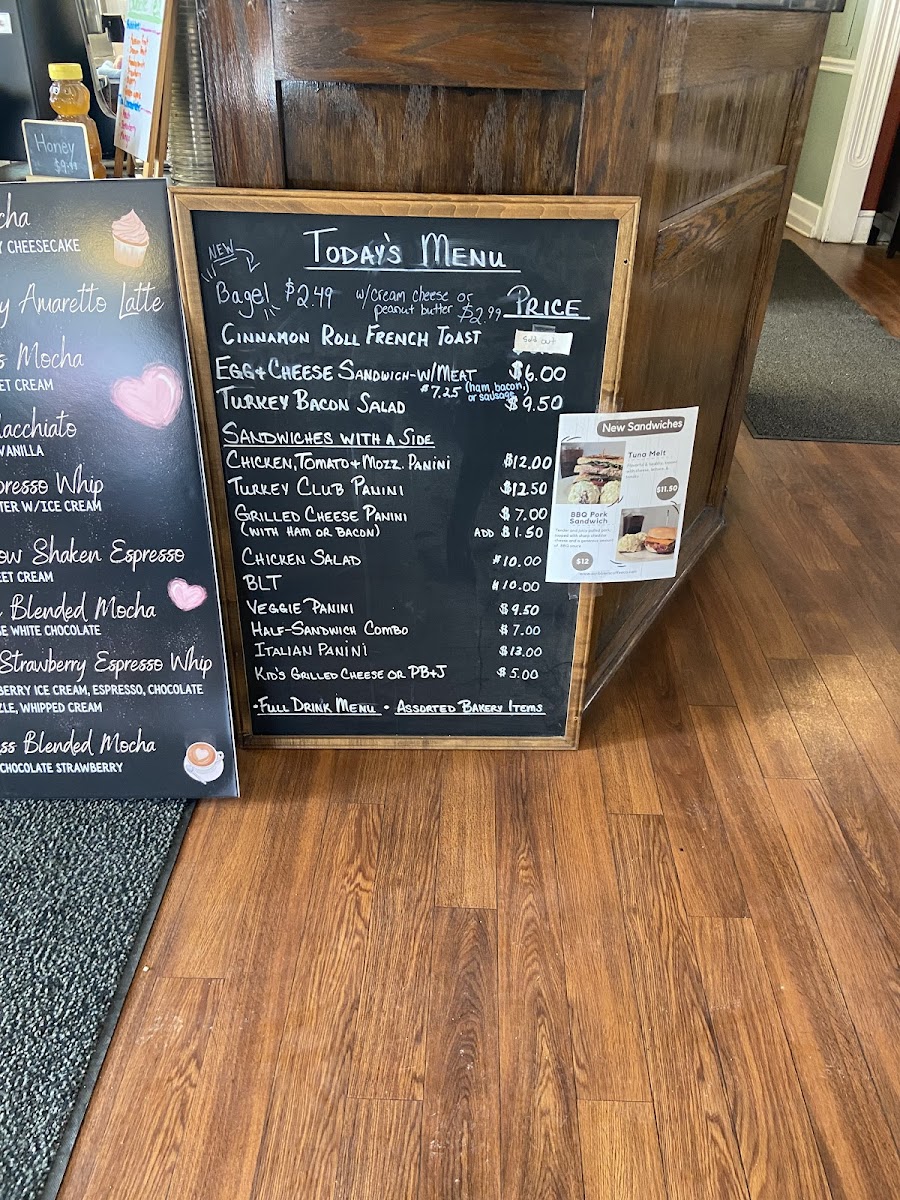 Honey
$9.99
cha
Y CHEESECAKE
y Amaretto Latte
s Mocha
EET CREAM
acchiato
VANILLA
presso Whip
TER W/ICE CREAM
ow Shaken Espresso
EET CREAM
Blended Mocha
SE WHITE CHOCOLATE
Strawberry Espresso Whip
BERRY ICE CREAM, ESPRESSO, CHOCOLATE
ZLE, WHIPPED CREAM
ss Blended Mocha
CHOCOLATE STRAWBERRY
TODAY'S MENU
NEW
Bagel $2.49 w/cream cheese or
peanut butter $2.99
PRICE
CINNAMON ROLL FRENCH TOAST Sold out
EGG+CHEESE SANDWICH-W/MEAT $6.00
$7.25 (ham, bacon,
or sausage)
TURKEY BACON SALAD $9.50
SANDWICHES WITH A SIDE
CHICKEN, TOMATO+MOZZ. PANINI $12.00
TURKEY CLUB PANINI $12.50
GRILLED CHEESE PANINI $7.00
(WITH HAM OR BACON) ADD $1.50
CHICKEN SALAD $10.00
BLT $10.00
VEGGIE PANINI $9.50
HALF-SANDWICH COMBO $7.00
ITALIAN PANINI $13.00
KID'S GRILLED CHEESE OR PB+J $5.00
•FULL DRINK MENU • ASSORTED BAKERY ITEMS
New Sandwiches
Tuna Melt
$11.50
BBQ Pork
Sandwich
$12